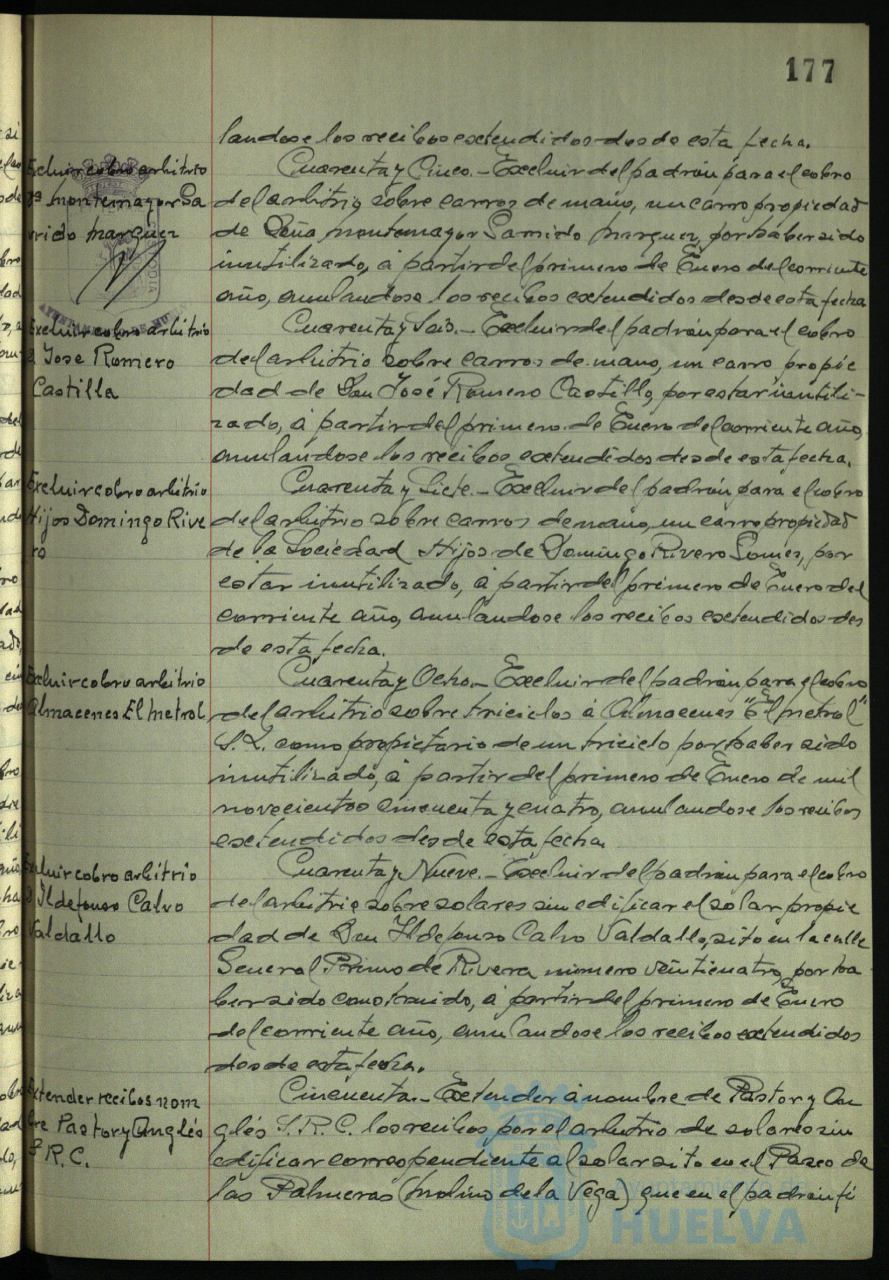 177
landose los recibos extendidos desde esta fecha.
Excluir cobro arbitrio
Dª Montemayor Ga
rrido Marquez
Cuarenta y Cinco.- Excluir del padrón para el cobro
del arbitrio sobre carros de mano, un carro propiedad
de Doña Montemayor Garrido Marquez, por haber sido
inutilizado, á partir del primero de Enero del corriente
año, anulandose los recibos extendidos desde esta fecha
Excluir cobro arbitrio
D Jose Romero
Castilla
Cuarenta y Seis.- Excluir del padrón para el cobro
del arbitrio sobre carros de mano, un carro propie
dad de Don José Romero Castillo, por estar inutili-
zado, á partir del primero de Enero del corriente año,
anulandose los recibos extendidos desde esta fecha.
Excluir cobro arbitrio
Hijos Domingo Rive
ro
Cuarenta y Siete.- Excluir del padrón para el cobro
del arbitrio sobre carros de mano, un carro propiedad
de la Sociedad Hijos de Domingo Rivero Gomez, por
estar inutilizado, á partir del primero de Enero del
corriente año, anulandose los recibos extendidos des
de esta fecha.
Excluir cobro arbitrio
Almacenes El Metrol
Cuarenta y Ocho.- Excluir del padrón para el cobro
del arbitrio sobre triciclos á Almacenes "El Metrol"
S.L. como propietario de un triciclo por haber sido
inutilizado, á partir del primero de Enero de mil
novecientos cincuenta y cuatro, anulandose los recibos
extendidos desde esta fecha.
Excluir cobro arbitrio
D Ildefonso Calvo
Valdallo
Cuarenta y Nueve.- Excluir del padrón para el cobro
del arbitrio sobre solares sin edificar el solar propie
dad de Don Ildefonso Calvo Valdallo, sito en la calle
General Primo de Rivera número veinticuatro, por ha
ber sido construido, á partir del primero de Enero
del corriente año, anulandose los recibos extendidos
desde esta fecha.
Extender recibos nom
bre Pastor y Anglés
S.R.C.
Cincuenta.- Extender á nombre de Pastor y An
glés S.R.C. los recibos por el arbitrio de solares sin
edificar correspondiente al solar sito en el Paseo de
las Palmeras (Molino de la Vega) que en el padrón fi
Ayuntamiento de
HUELVA